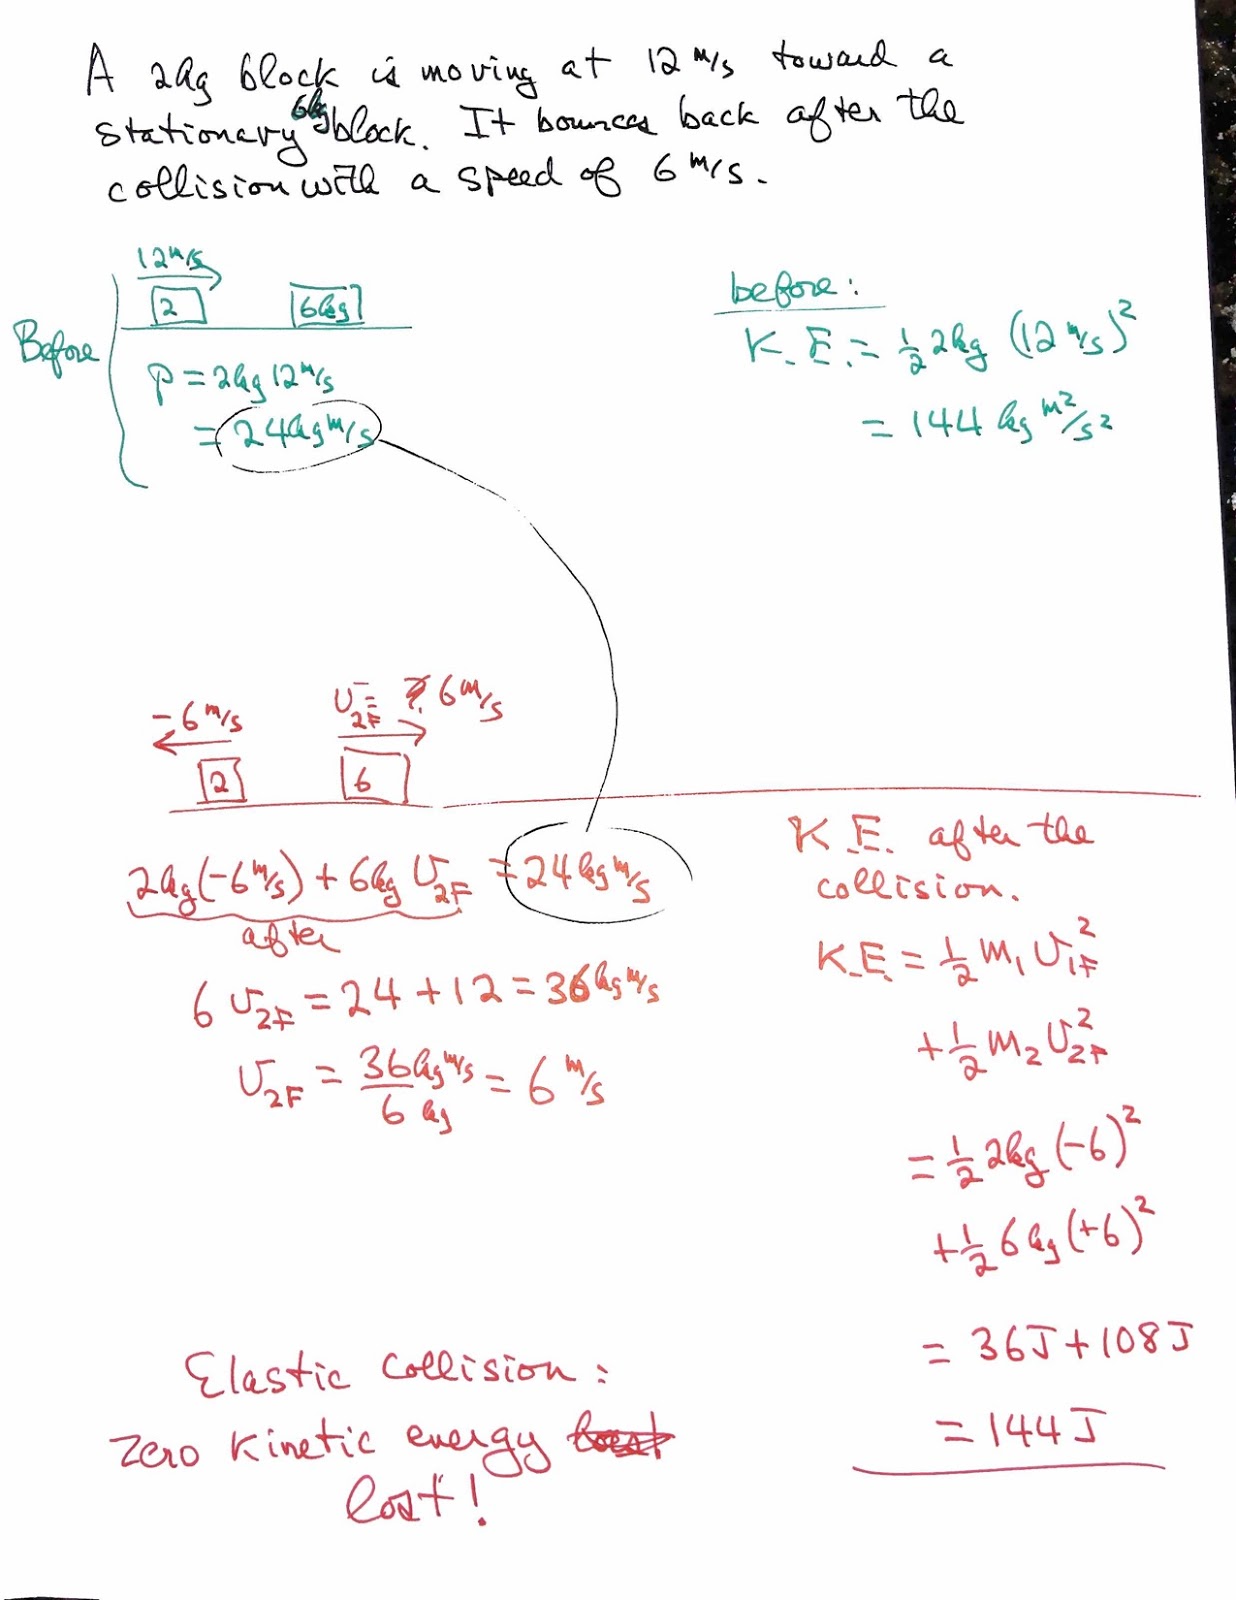 A 2kg block is moving at 12 m/s toward a
stationary 6kg block. It bounces back after the
collision with a speed of 6 m/s.
12 m/s
2 6kg
Before
P = 2kg 12 m/s
= 24 kg m/s
before:
K.E. = 1/2 2kg (12 m/s)²
= 144 kg m²/s²
-6 m/s
U2F = ? 6 m/s
2 6
2kg(-6 m/s) + 6kg U2F = 24 kg m/s
after
6 U2F = 24 + 12 = 36 kg m/s
U2F = 36 kg m/s / 6 kg = 6 m/s
K.E. after the
collision.
K.E. = 1/2 m1 U1F²
+ 1/2 m2 U2F²
= 1/2 2kg (-6)²
+ 1/2 6kg (+6)²
= 36J + 108J
= 144J
Elastic collision:
Zero kinetic energy
lost!